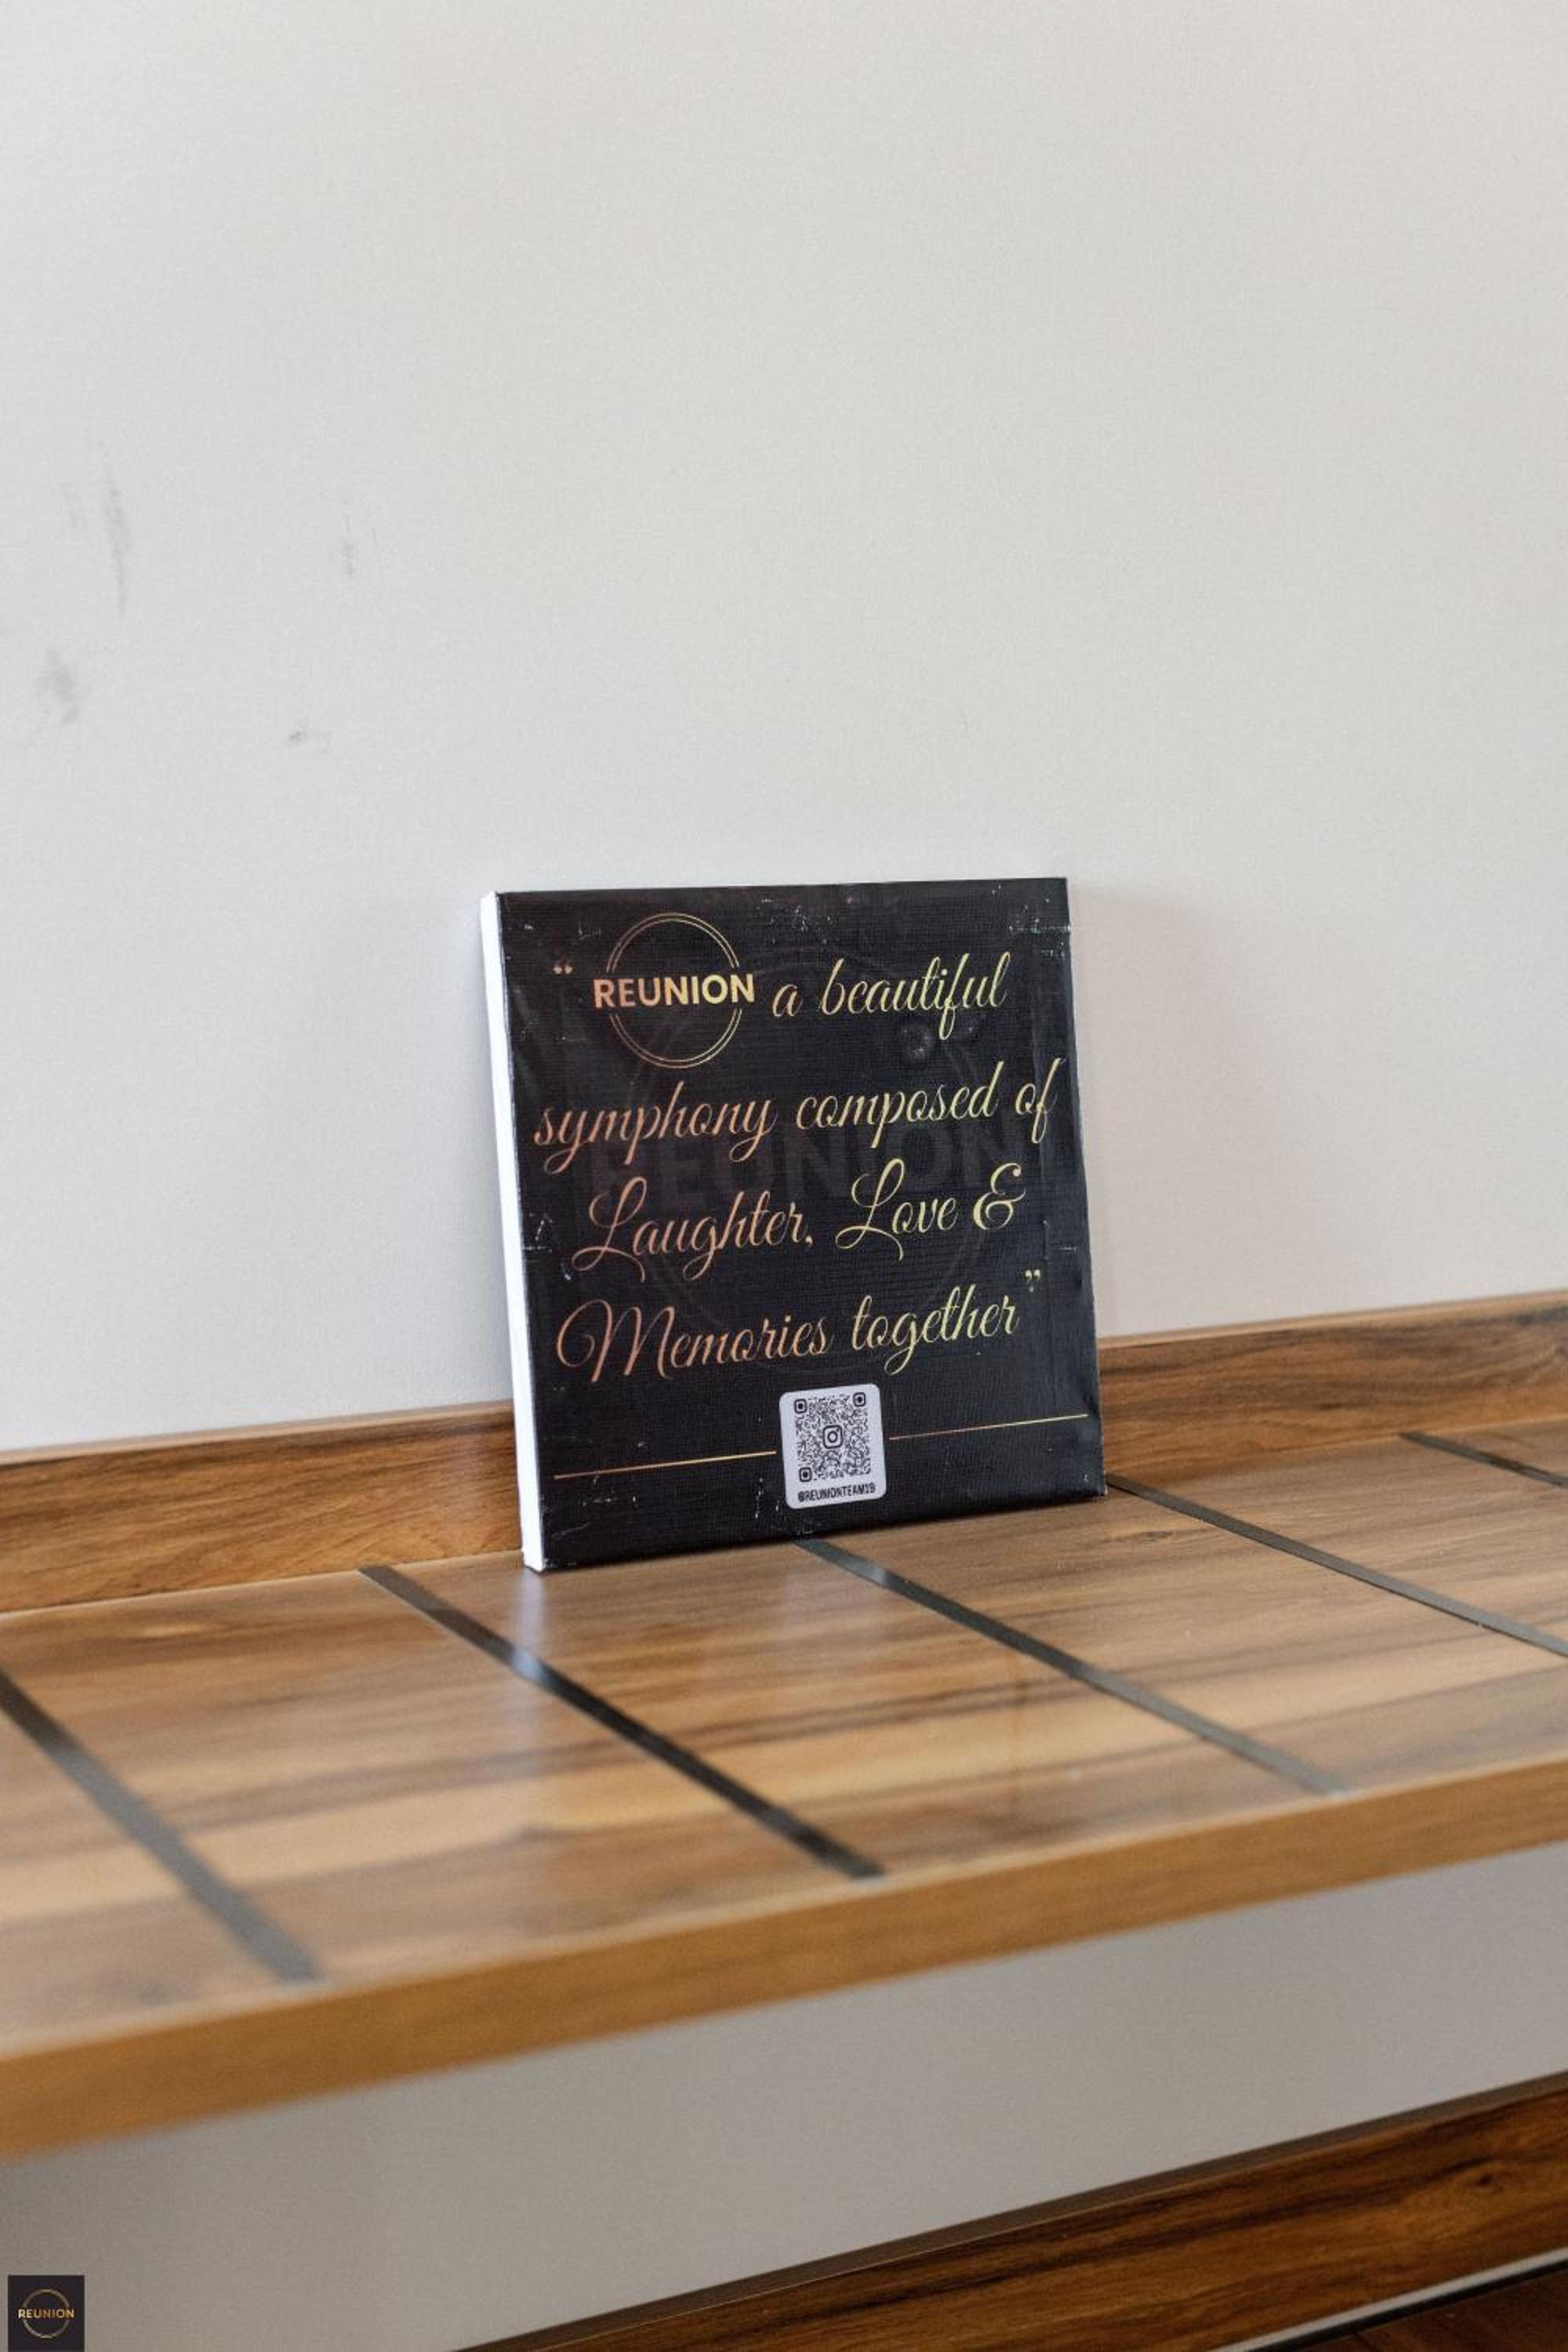 “ REUNION a beautiful
symphony composed of
Laughter, Love &
Memories together”
@REUNIONTEAM19
REUNION
REUNION